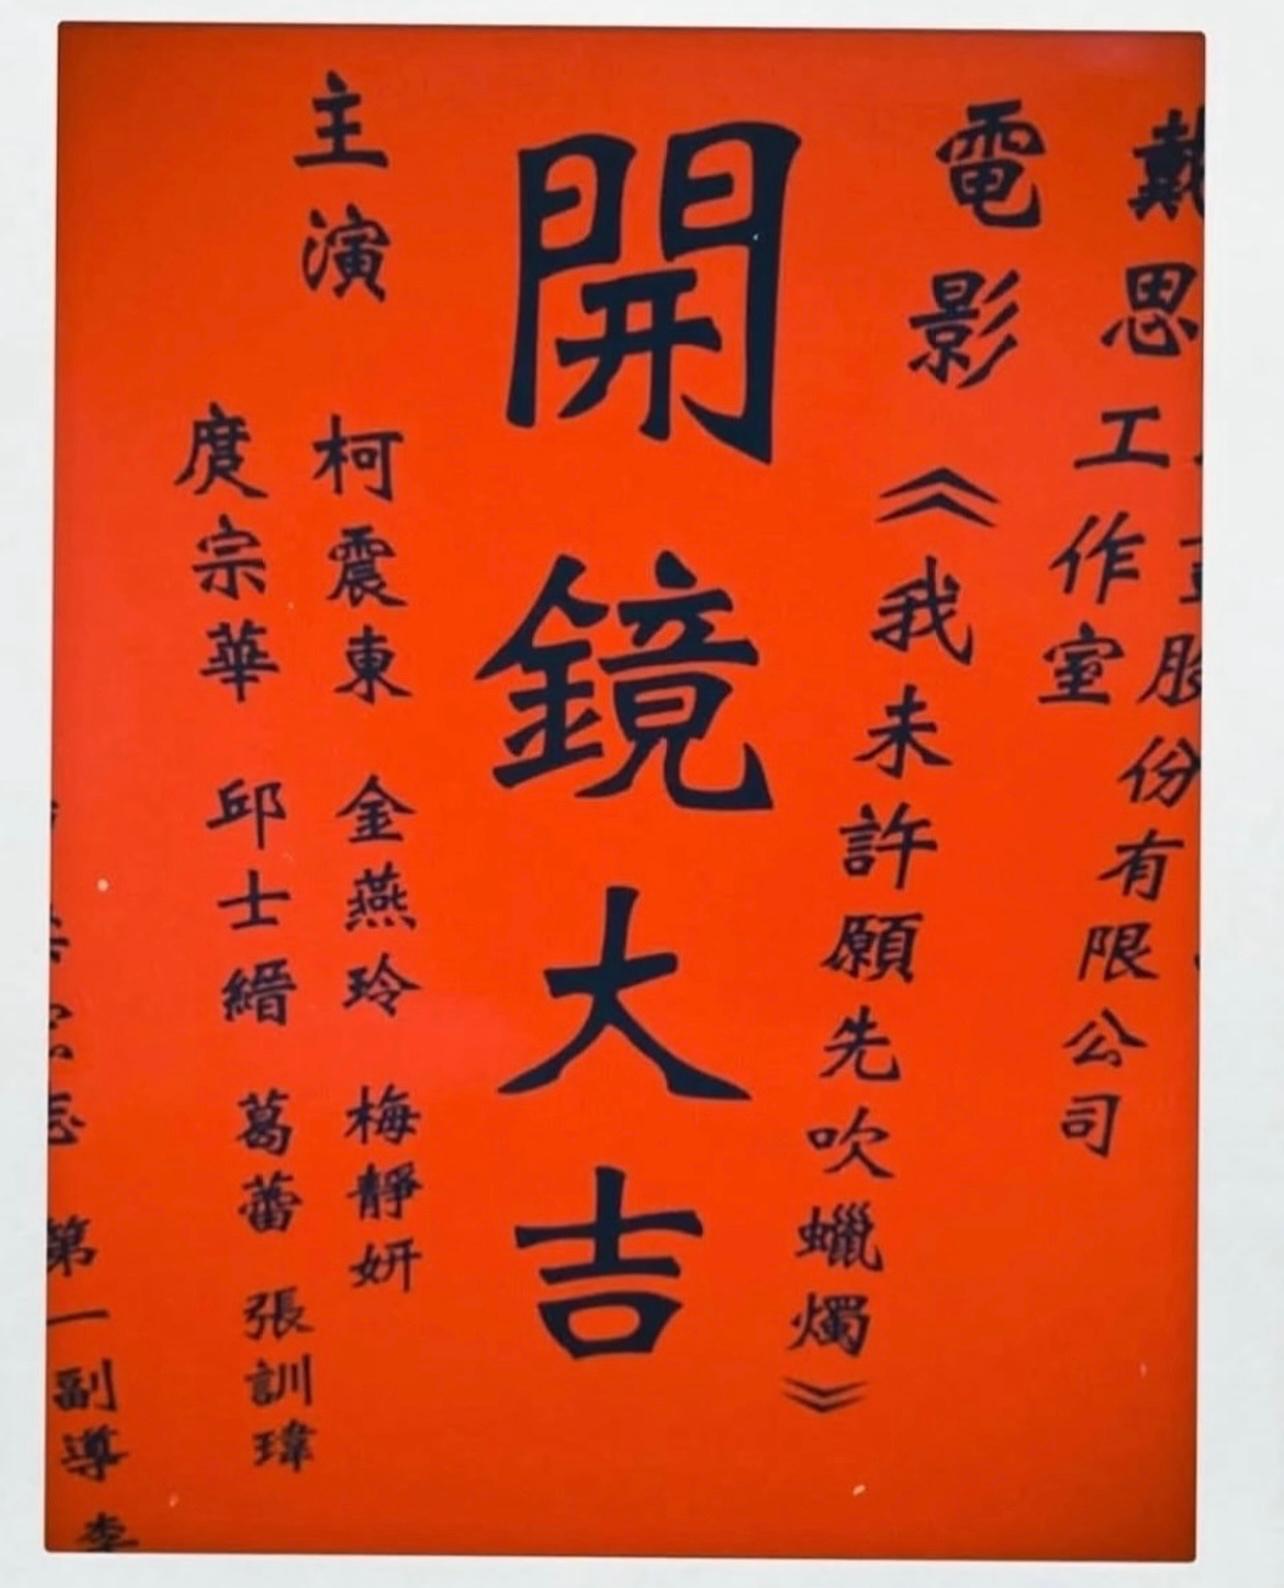 股份有限公司
戴思工作室
電影《我未許願先吹蠟燭》
開鏡大吉
主演
柯震東 金燕玲 梅靜妍
庹宗華 邱士縉 葛蕾 張訓瑋
第一副導 李